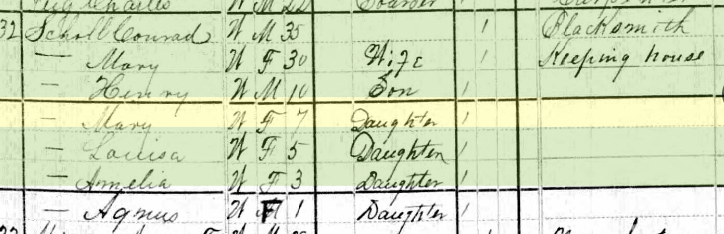 Charles W M 22 Boarder
32 Scholl Conrad W M 35 1 Blacksmith
— Mary W F 30 Wife 1 Keeping house
— Henry W M 10 Son 1
— Mary W F 7 Daughter 1
— Louisa W F 5 Daughter 1
— Amelia W F 3 Daughter 1
— Agnus W F 1 Daughter 1